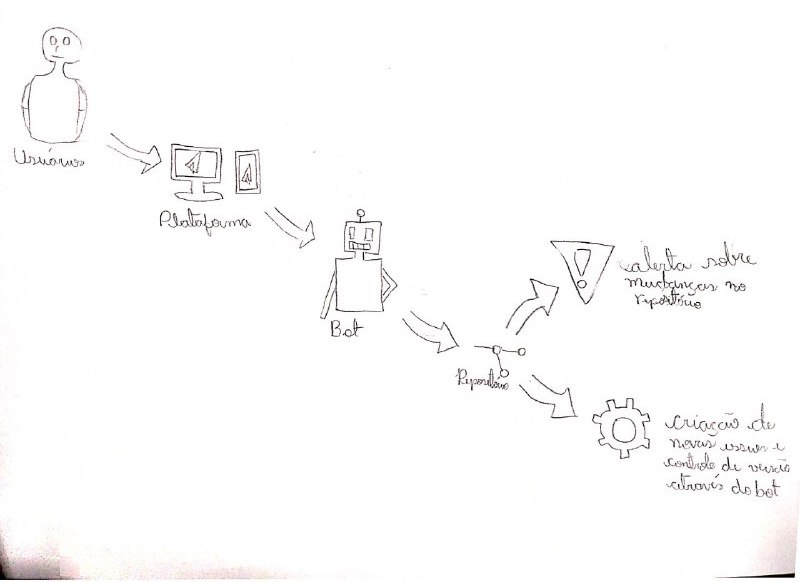 Usuários
Plataforma
Bot
Repositório
alerta sobre
mudanças no
repositório
criação de
novas issues e
controle de versão
através do bot